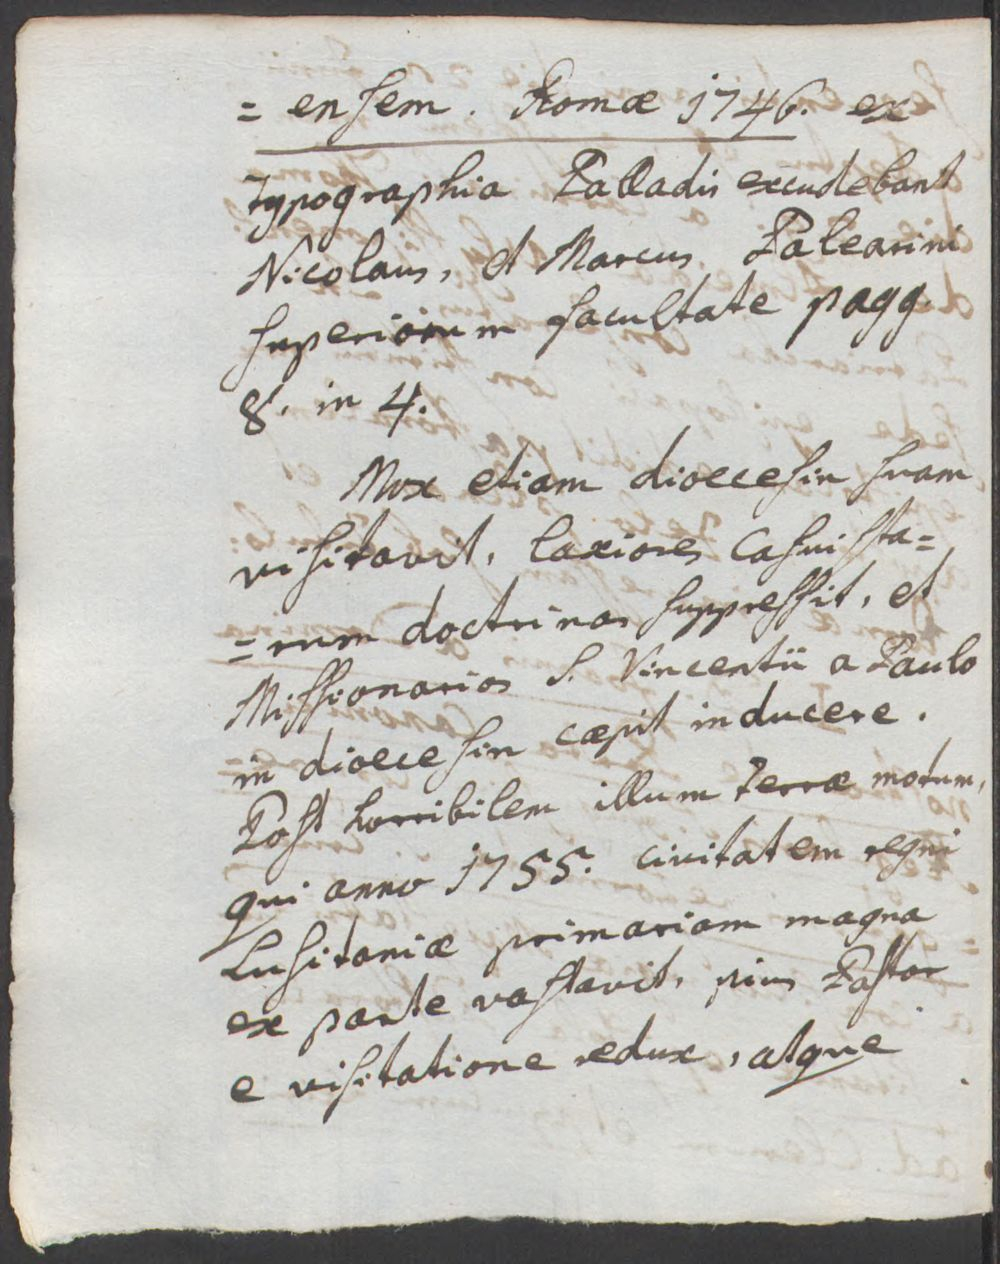 = ensem. Romæ 1746. ex
typographia Palladis excudebant
Nicolaus, et Marcus Palearini
superiorum facultate pagg.
8. in 4.
Mox etiam dioecesin suam
visitavit, laxiores Casuista=
=rum doctrinas suppressit, et
Missionarios S. Vincentii a Paulo
in dioecesin cæpit inducere.
Post horribilem illum terræ motum,
qui anno 1755. civitatem regni
Lusitaniæ primariam magna
ex parte vastavit, pius Pastor
e visitatione redux, atque